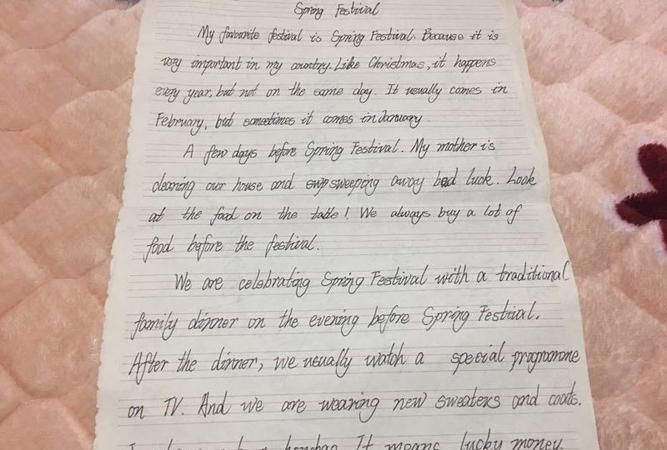 Spring Festival
My favourite festival is Spring Festival. Because it is
very important in my country. Like Christmas, it happens
every year, but not on the same day. It usually comes in
February, but sometimes it comes in January
A few days before Spring Festival. My mother is
cleaning our house and sweeping away bad luck. Look
at the food on the table! We always buy a lot of
food before the festival.
We are celebrating Spring Festival with a traditional
family dinner on the evening before Spring Festival.
After the dinner, we usually watch a special programme
on TV. And we are wearing new sweaters and coats.
hongbao. It means lucky money.